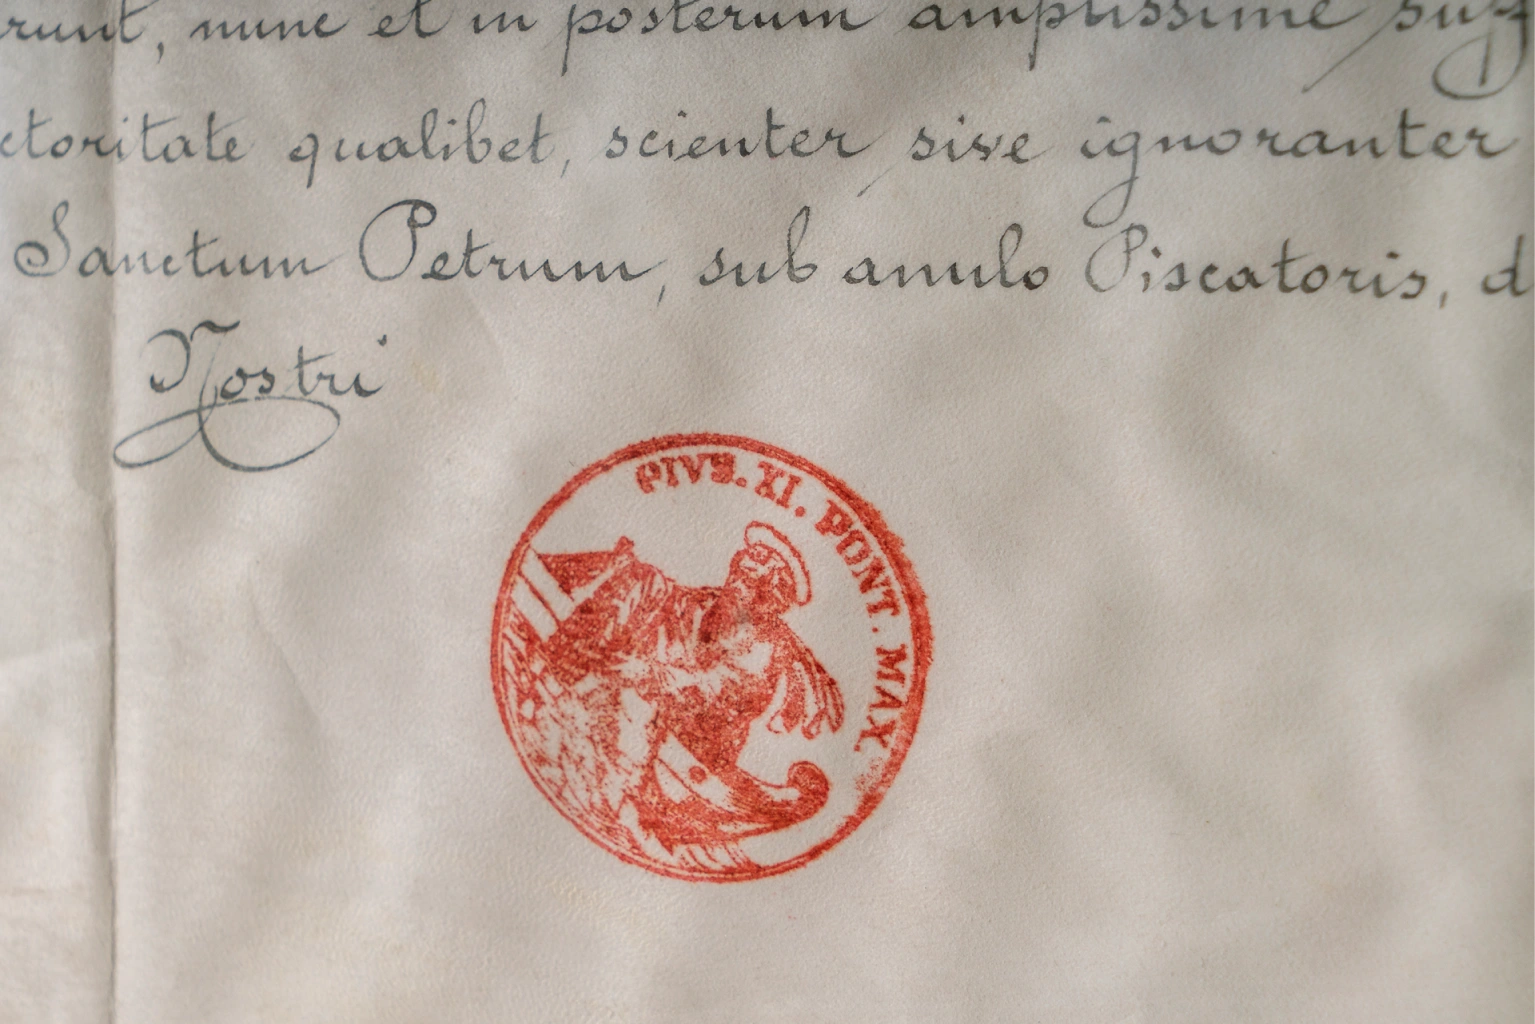 runt, nunc et in posterum amplissime suff
ctoritate qualibet, scienter sive ignoranter
Sanctum Petrum, sub anulo Piscatoris, d
Nostri
PIVS. XI. PONT. MAX